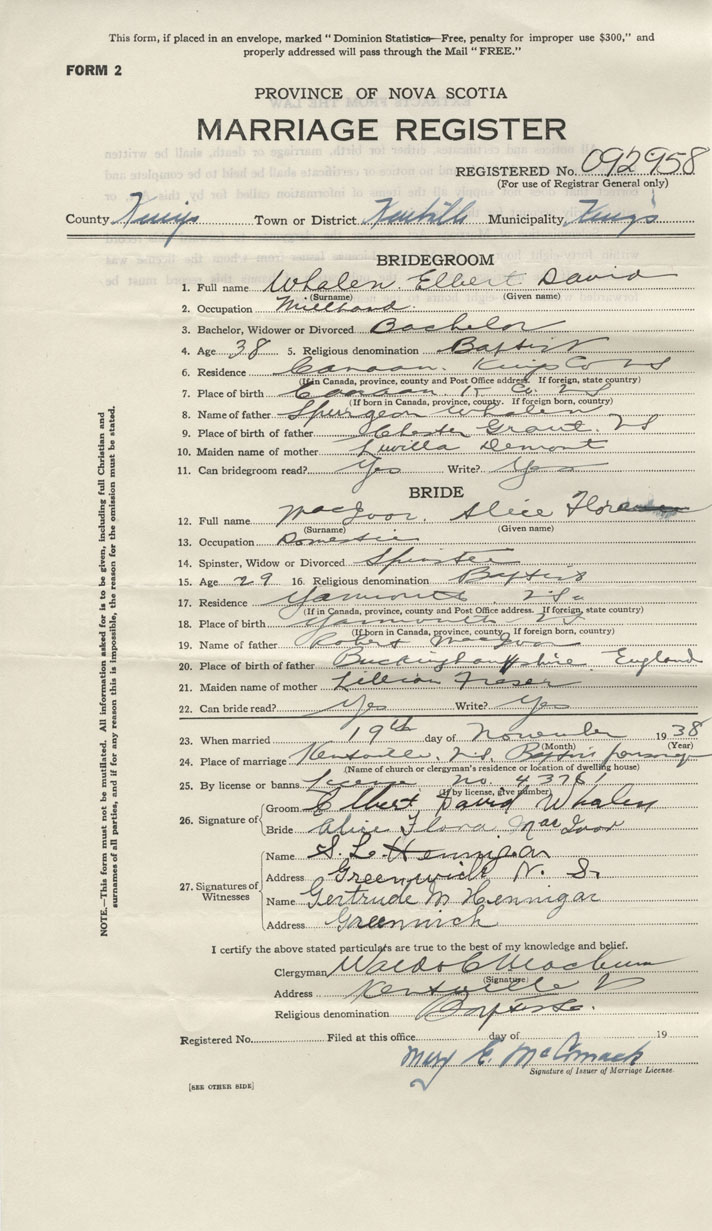 This form, if placed in an envelope, marked "Dominion Statistics—Free, penalty for improper use $300," and
properly addressed will pass through the Mail "FREE."
FORM 2
PROVINCE OF NOVA SCOTIA
MARRIAGE REGISTER
REGISTERED No. 092958
(For use of Registrar General only)
County Kings Town or District Kentville Municipality Kings
BRIDEGROOM
1. Full name Whalen, Elbert David
(Surname) (Given name)
2. Occupation Millhand
3. Bachelor, Widower or Divorced Bachelor
4. Age 38 5. Religious denomination Baptist
6. Residence Canaan. Kings Co NS
(If in Canada, province, county and Post Office address. If foreign, state country)
7. Place of birth Canaan. K. Co. NS
(If born in Canada, province, county. If foreign born, country)
8. Name of father Spurgeon Whalen
9. Place of birth of father Chester Grant. NS
10. Maiden name of mother Luvilla Demont
11. Can bridegroom read? Yes Write? Yes
BRIDE
12. Full name MacIvor, Alice Flora
(Surname) (Given name)
13. Occupation Domestic
14. Spinster, Widow or Divorced Spinster
15. Age 29 16. Religious denomination Baptist
17. Residence Yarmouth N.S.
(If in Canada, province, county and Post Office address. If foreign, state country)
18. Place of birth Yarmouth NS
(If born in Canada, province, county. If foreign born, country)
19. Name of father Robert MacIvor
20. Place of birth of father Buckinghamshire, England
21. Maiden name of mother Lillian Fraser
22. Can bride read? Yes Write? Yes
23. When married 19th day of November 1938
(Month) (Year)
24. Place of marriage Kentville, N.S., Baptist parsonage
(Name of church or clergyman's residence or location of dwelling house)
25. By license or banns License no. 4,376
(If by license, give number)
26. Signature of Groom Elbert David Whalen
Bride Alice Flora MacIvor
27. Signatures of Witnesses
Name S. L. Hennigar
Address Greenwich N. S.
Name Gertrude M Hennigar
Address Greenwich
I certify the above stated particulars are true to the best of my knowledge and belief.
Clergyman Waldo C Machum
(Signature)
Address Kentville
Religious denomination Baptist.
Registered No. Filed at this office day of 19
Mary E. McCormack
Signature of Issuer of Marriage License.
[SEE OTHER SIDE]
NOTE.—This form must not be mutilated. All information asked for is to be given, including full Christian and
surnames of all parties, and if for any reason this is impossible, the reason for the omission must be stated.